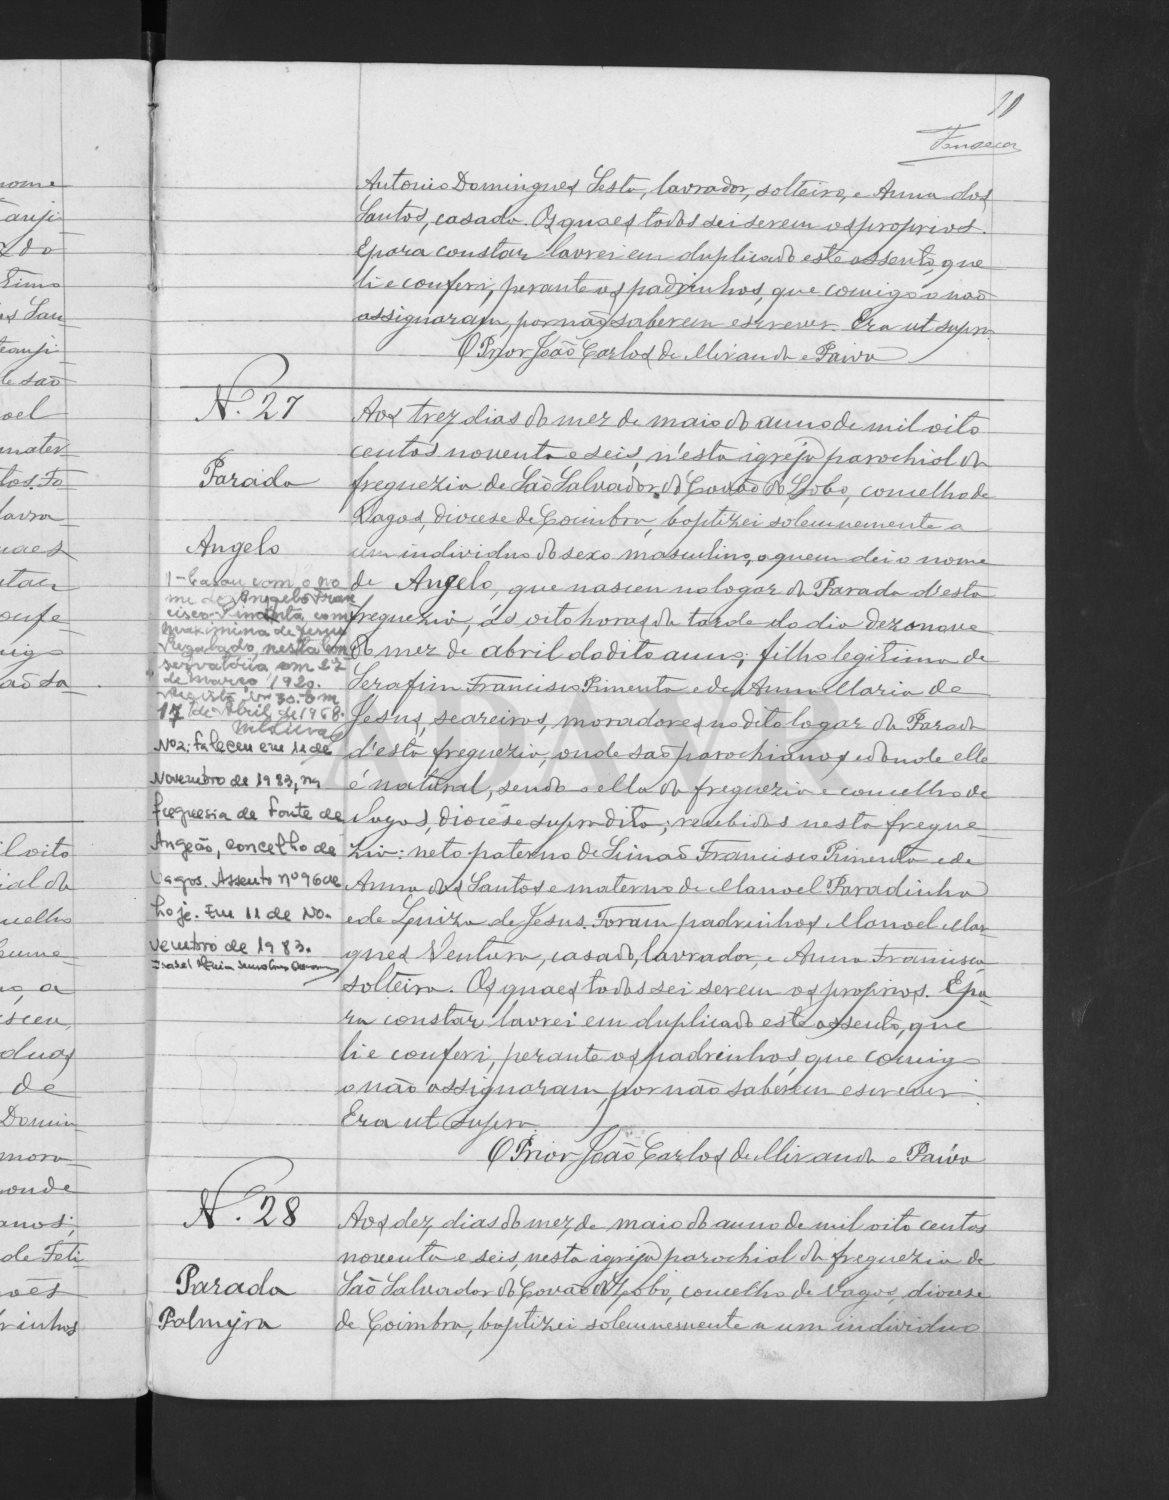 10
Fonseca
Antonio Domingues Sesta, lavrador, solteiro, e Anna dos
Santos, casada. Os quaes todos sei serem os proprios.
E para constar lavrei em duplicado este assento, que
li e conferi, perante os padrinhos, que comigo o não
assignaram, por não saberem escrever. Era ut supra.
O Prior João Carlos de Miranda e Paiva
N. 27
Parada
Angelo
1 - Casou com o no
me de Angelo Fran
cisco Pimenta com
de Jesus
nesta con
servatória em 27
de março 1920.
17 de Abril de 1968.
Nº 2: faleceu em 11 de
Novembro de 1983, na
freguesia de Fonte de
Angeão, concelho de
Vagos. Assento nº 96 de
hoje. Em 11 de No-
vembro de 1983.
Aos trez dias do mez de maio do anno de mil oito
centos noventa e seis, n'esta igreja parochial da
freguezia de São Salvador do Covão do Lobo, concelho de
Vagos, diocese de Coimbra, baptizei solemnemente a
um individuo do sexo masculino, a quem dei o nome
de Angelo, que nasceu no logar da Parada d'esta
freguezia, ás oito horas da tarde do dia dezanove
do mez de abril do dito anno; filho legitimo de
Serafim Francisco Pimenta e de Anna Maria de
Jesus, seareiros, moradores no dito logar da Parada
d'esta freguezia, onde são parochianos e donde elle
é natural, sendo ella da freguezia e concelho de
Vagos, diocése supradita; recebidos nesta fregue-
zia: neto paterno de Simão Francisco Pimenta e de
Anna dos Santos e materno de Manoel Paradinha
e de Luiza de Jesus. Foram padrinhos Manoel Mar-
ques Ventura, casado, lavrador, e Anna Francisca,
solteira. Os quaes todos sei serem os proprios. E pa-
ra constar lavrei em duplicado este assento, que
li e conferi, perante os padrinhos, que comigo
o não assignaram, por não saberem escrever.
Era ut supra
O Prior João Carlos de Miranda e Paiva
N. 28
Parada
Palmyra
Aos dez dias do mez de maio do anno de mil oito centos
noventa e seis, nesta igreja parochial da freguezia de
São Salvador do Covão do Lobo, concelho de Vagos, diocese
de Coimbra, baptizei solemnemente a um individuo
ADAVR